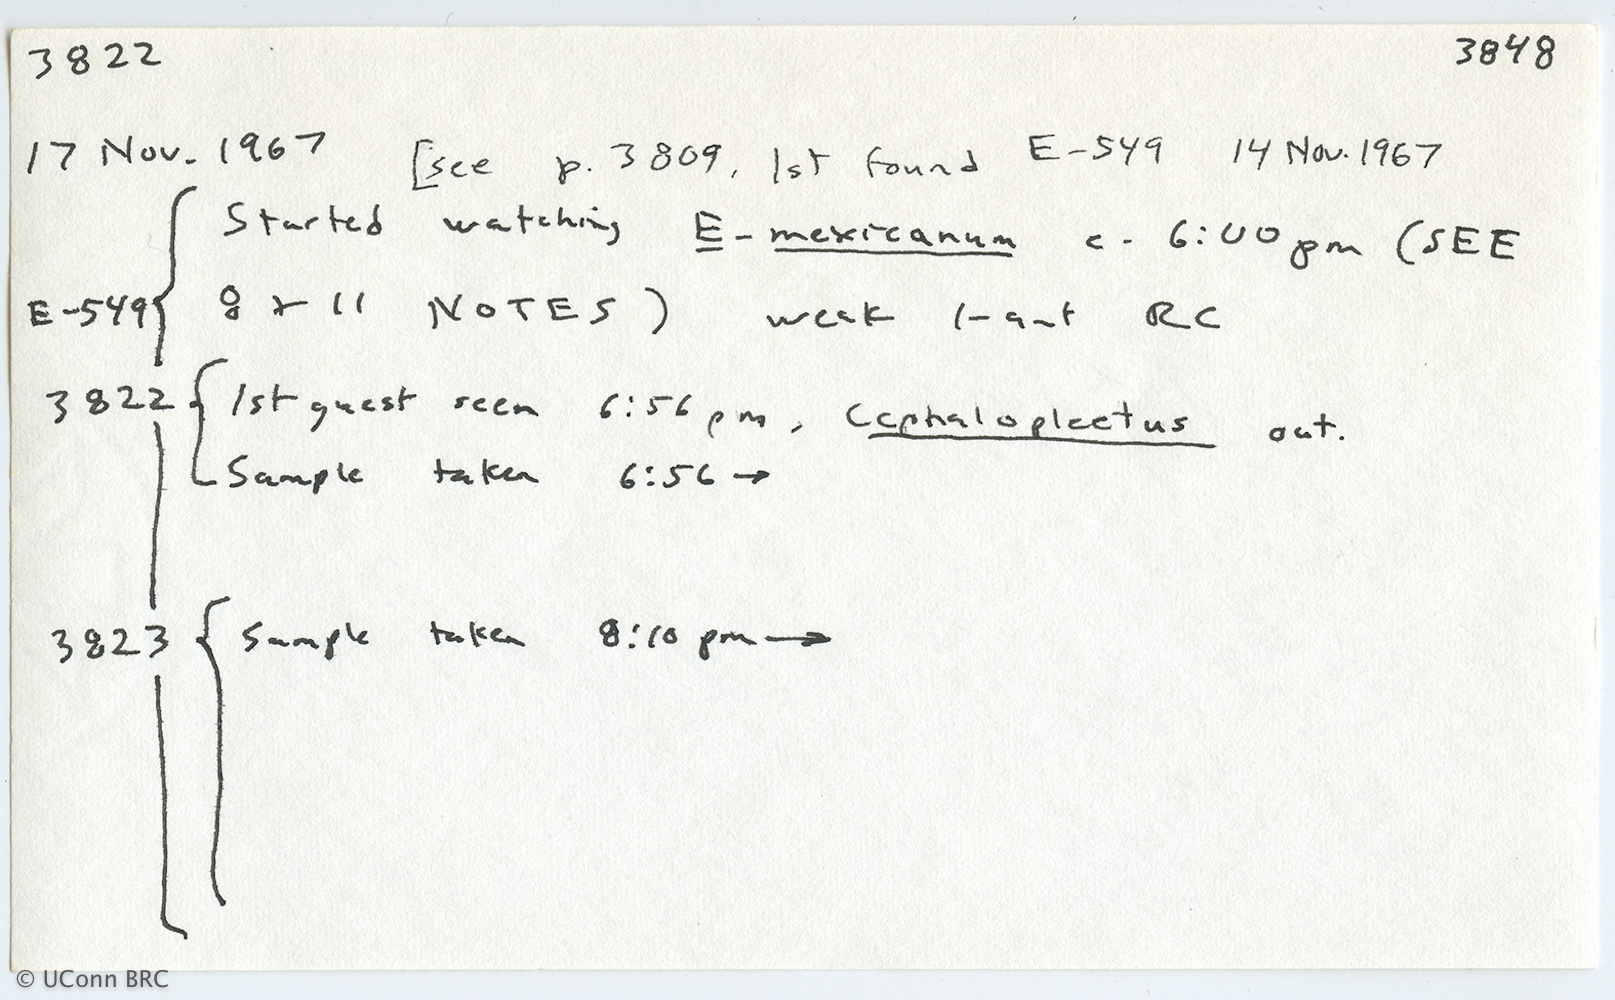 3822 3848
17 Nov. 1967 [see p. 3809, 1st found E-549 14 Nov. 1967
Started watching E-mexicanum c. 6:00 pm (SEE
E-549 8 & 11 NOTES) weak 1-ant RC
3822 1st guest seen 6:56 pm, Cephaloplectus out.
Sample taken 6:56 →
3823 Sample taken 8:10 pm →
© UConn BRC